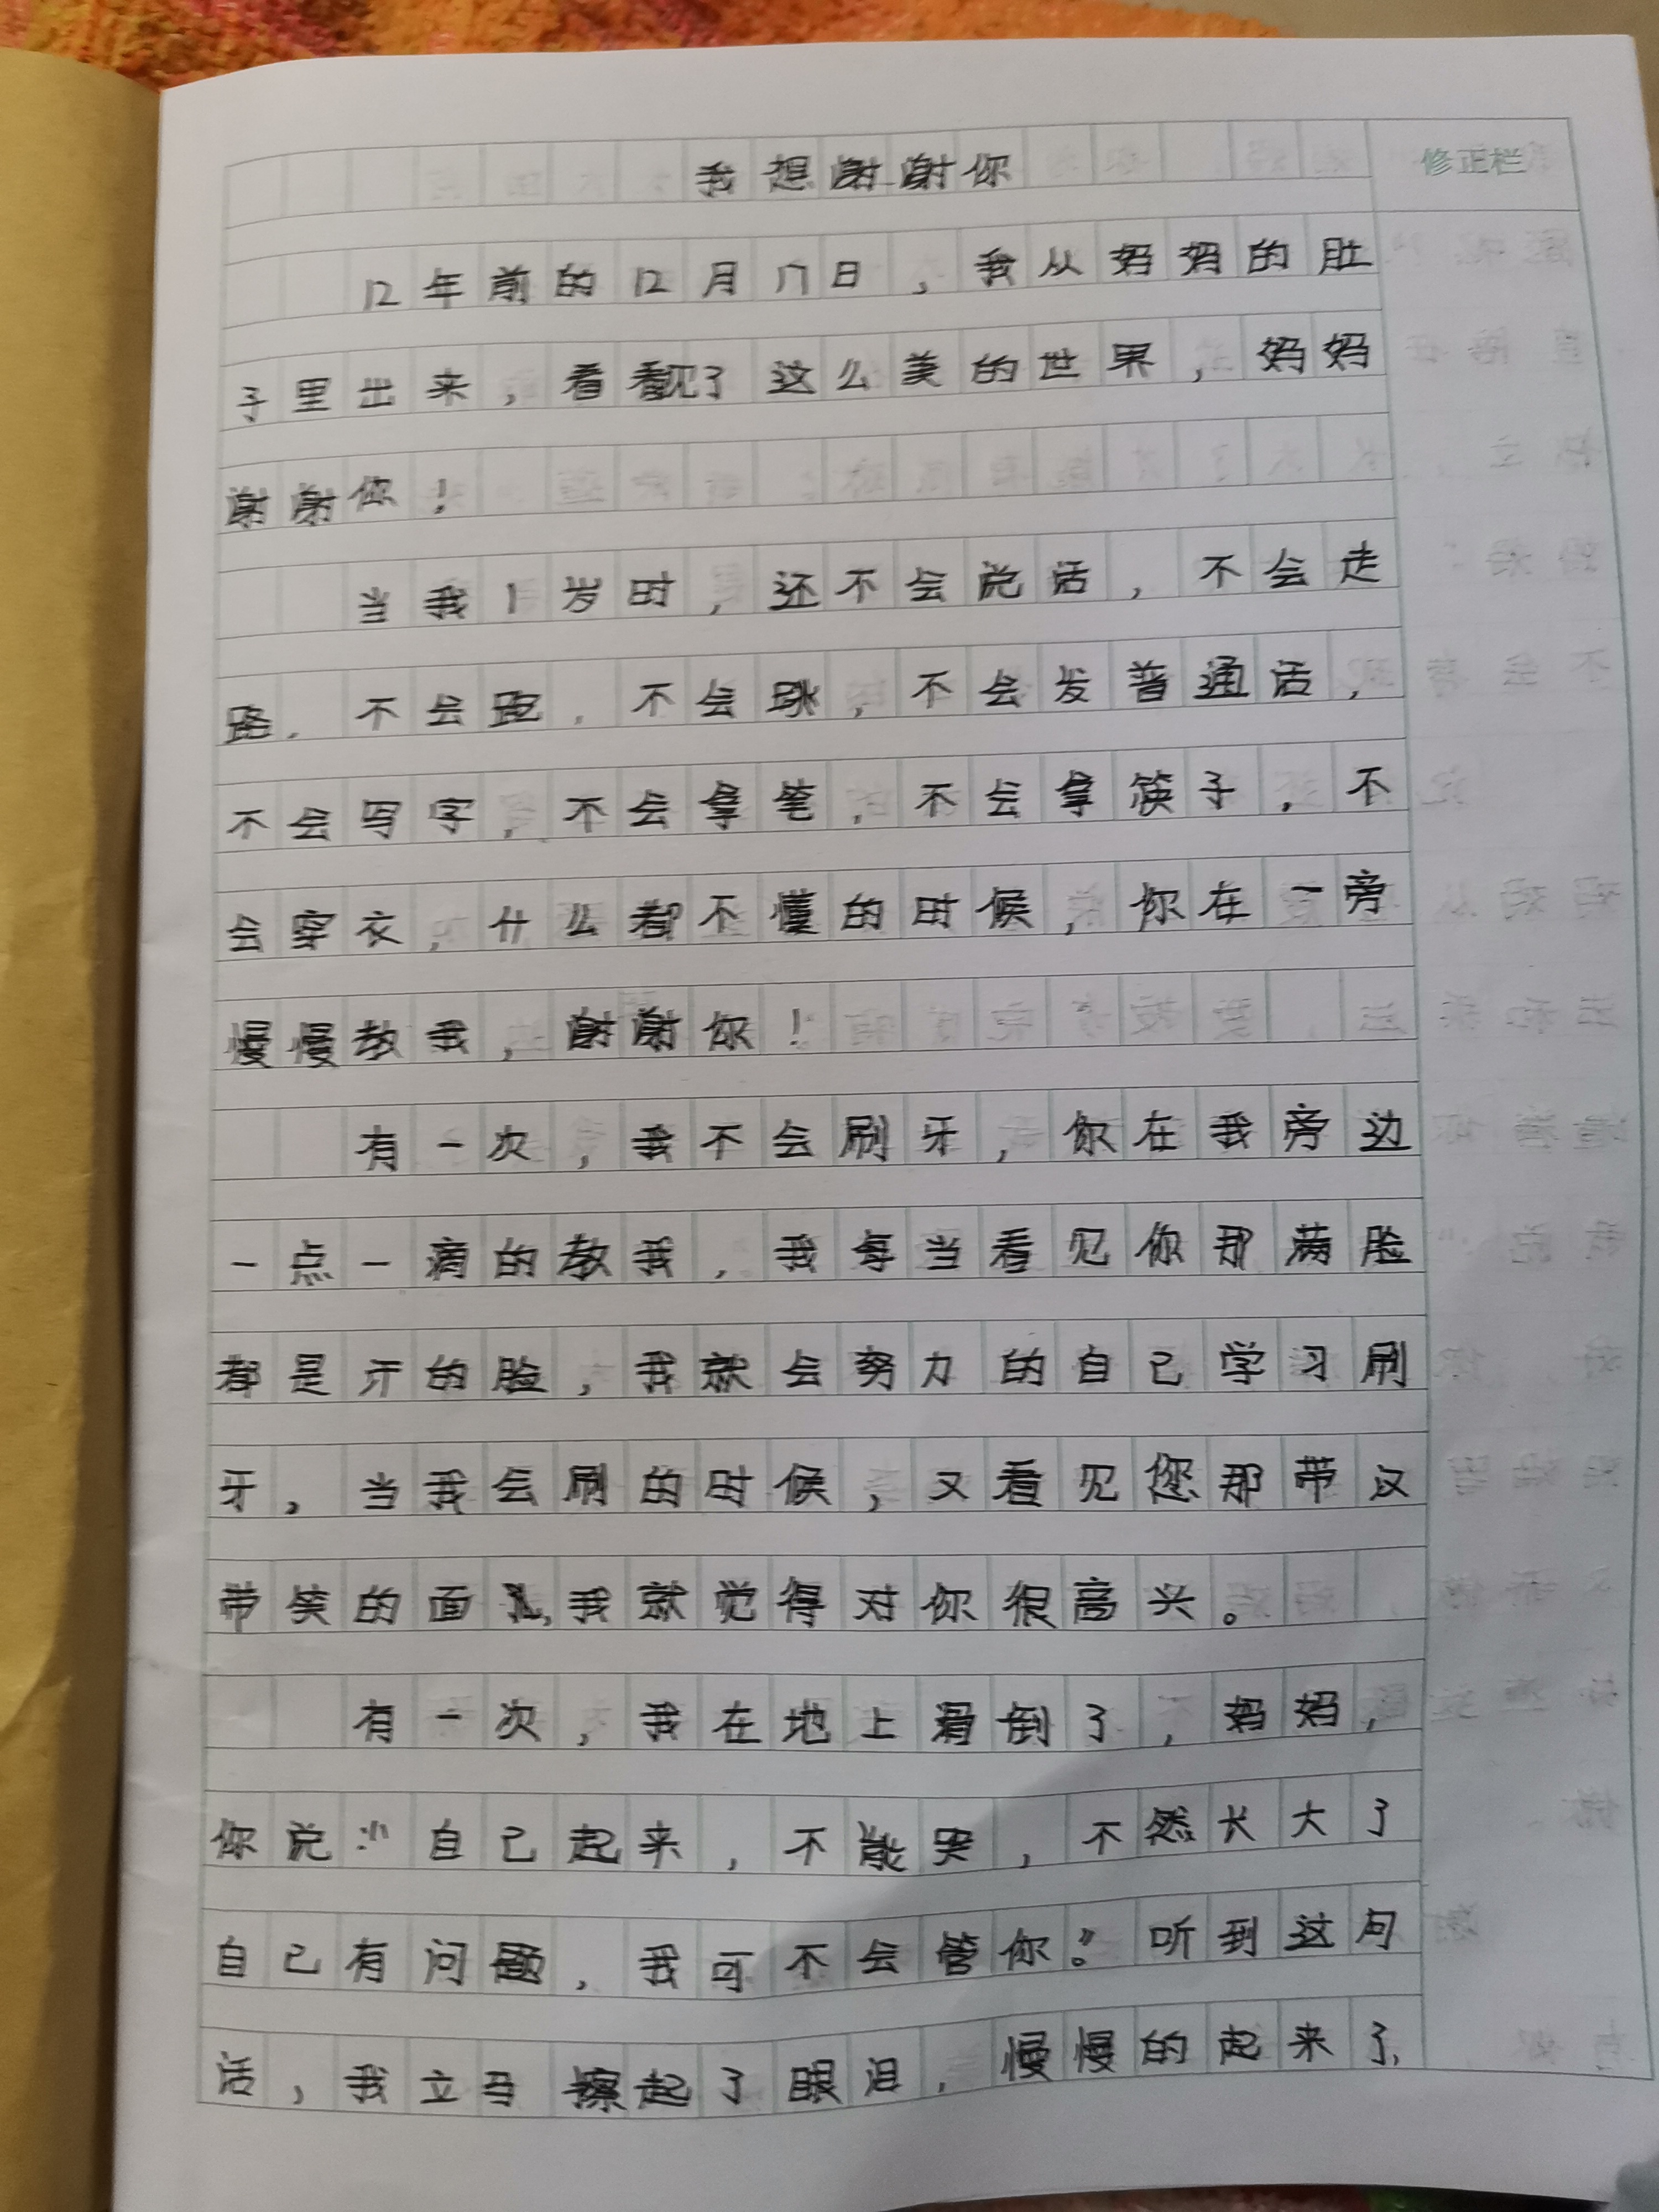 我想谢谢你
修正栏
12年前的12月17日，我从妈妈的肚
子里出来，看看见了这么美的世界，妈妈
谢谢你！
当我1岁时，还不会说话，不会走
路，不会跑，不会跳，不会发普通话，
不会写字，不会拿笔，不会拿筷子，不
会穿衣，什么都不懂的时候，你在一旁
慢慢教我，谢谢你！
有一次，我不会刷牙，你在我旁边
一点一滴的教我，我每当看见你那满脸
都是牙的脸，我就会努力的自己学习刷
牙，当我会刷的时候，又看见您那带又
带笑的面孔，我就觉得对你很高兴。
有一次，我在地上滑倒了，妈妈，
你说：“自己起来，不能哭，不然长大了
自己有问题，我可不会管你。”听到这句
话，我立马擦起了眼泪，慢慢的起来了，